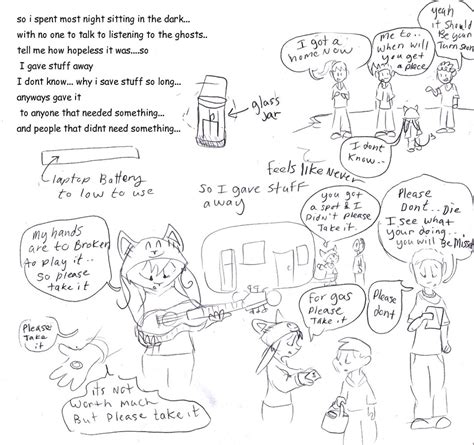 so i spent most night sitting in the dark...
with no one to talk to listening to the ghosts..
tell me how hopeless it was....so
I gave stuff away
I dont know... why i save stuff so long...
anyways gave it
to anyone that needed something...
and people that didnt need something...
I got a
home Now
Me to...
When will
you get
a place
yeah
it
Should
Be your
Turn soon
I dont
Know..
feels like Never
glass
jar
laptop Battery
to low to use
So I gave stuff
away
you got
a spot & I
Didn't Please
Take it
Please
Dont.. Die
I see what
your doing...
you will Be Missed
My hands
are to Broken
to play it..
So please
take it
Please
Take it
its Not
Worth much
But Please take it
for gas
Please
Take it
Please
Dont